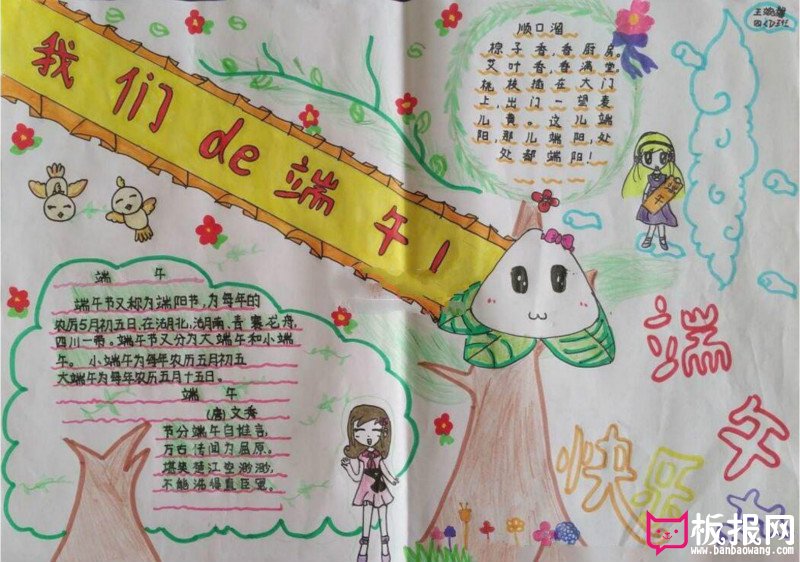 我们de端午！
顺口溜
粽子香,香厨房。
艾叶香,香满堂。
桃枝插在大门
上,出门一望麦
儿黄。这儿端
阳,那儿端阳,处
处都端阳！
端午
端午
端午节又称为端阳节,为每年的
农历5月初五日,在湖北、湖南、青
四川一带。端午节又分为大端午和小端
午。小端午为每年农历五月初五
大端午为每年农历五月十五日。
端午
(唐)文秀
节分端午自谁言,
万古传闻为屈原。
堪笑楚江空渺渺,
不能洗得直臣冤。
端午
快乐
板报网
www.banbaowang.com